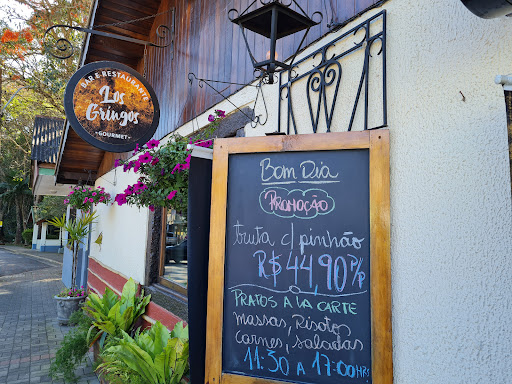 BAR & RESTAURANTE
Los
Gringos
GOURMET
Bom Dia
PROMOÇÃO
truta c/ pinhão
R$ 44,90 P/P
PRATOS A LA CARTE
massas, Risoto,
carnes, saladas
11:30 A 17:00HRS